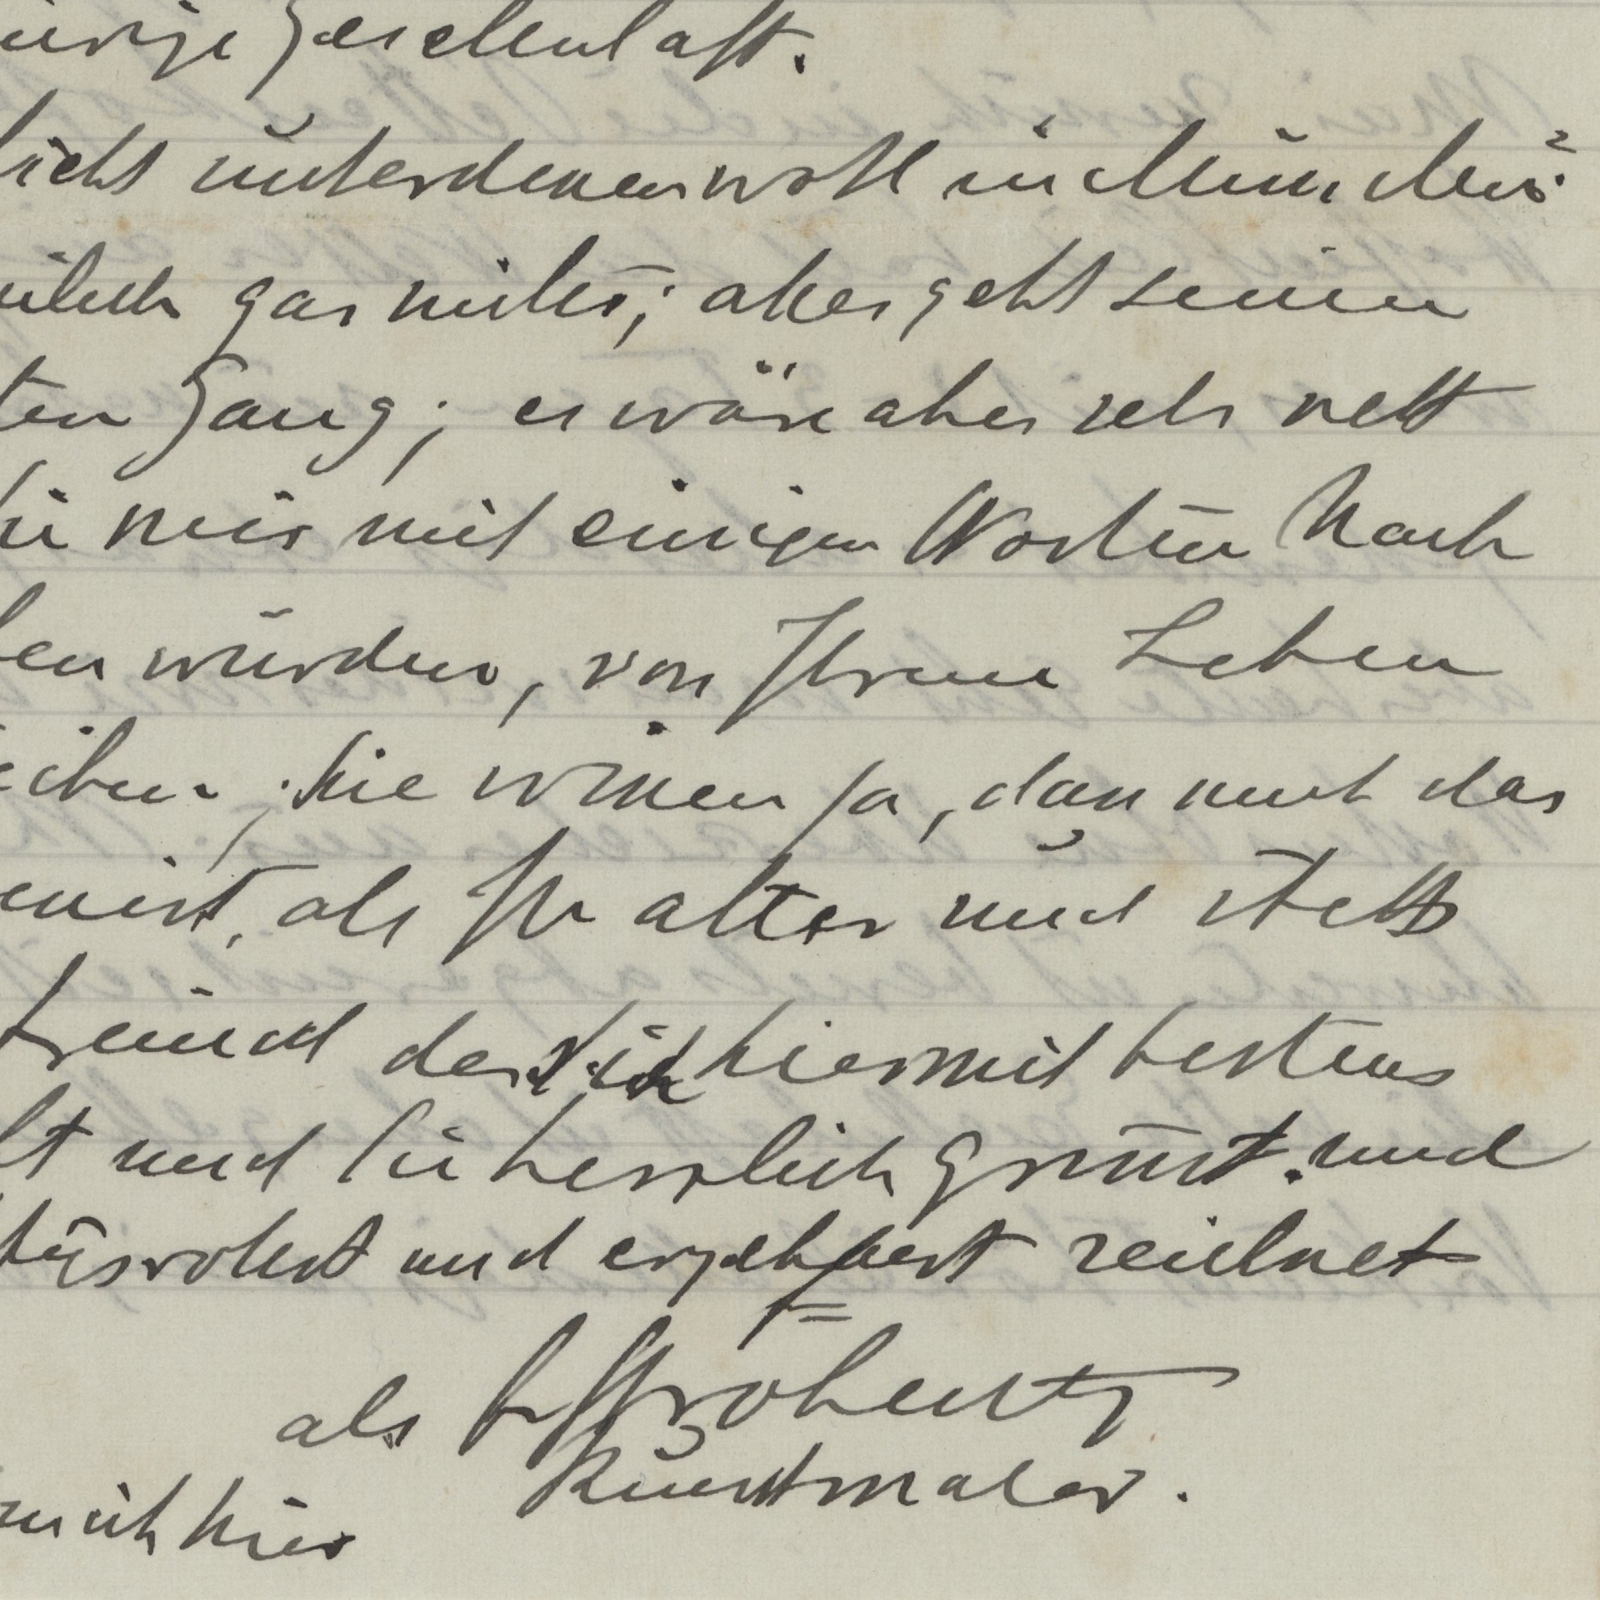 Gesellschaft.
unterdenen wohl in München
gar nichts; alles geht seinen
ten Gang; es wäre aber sehr nett
Sie mir mit einigen Worten Nach
ben würden, von Ihrem Leben
eiben; Sie wissen ja, dass mich das
als Ihr alter und stetts
Freund der sich hiermit bestens
lt und Sie herzlich grüsst. und
und ergebenst zeichnet
als
Kunstmaler.
mich hier